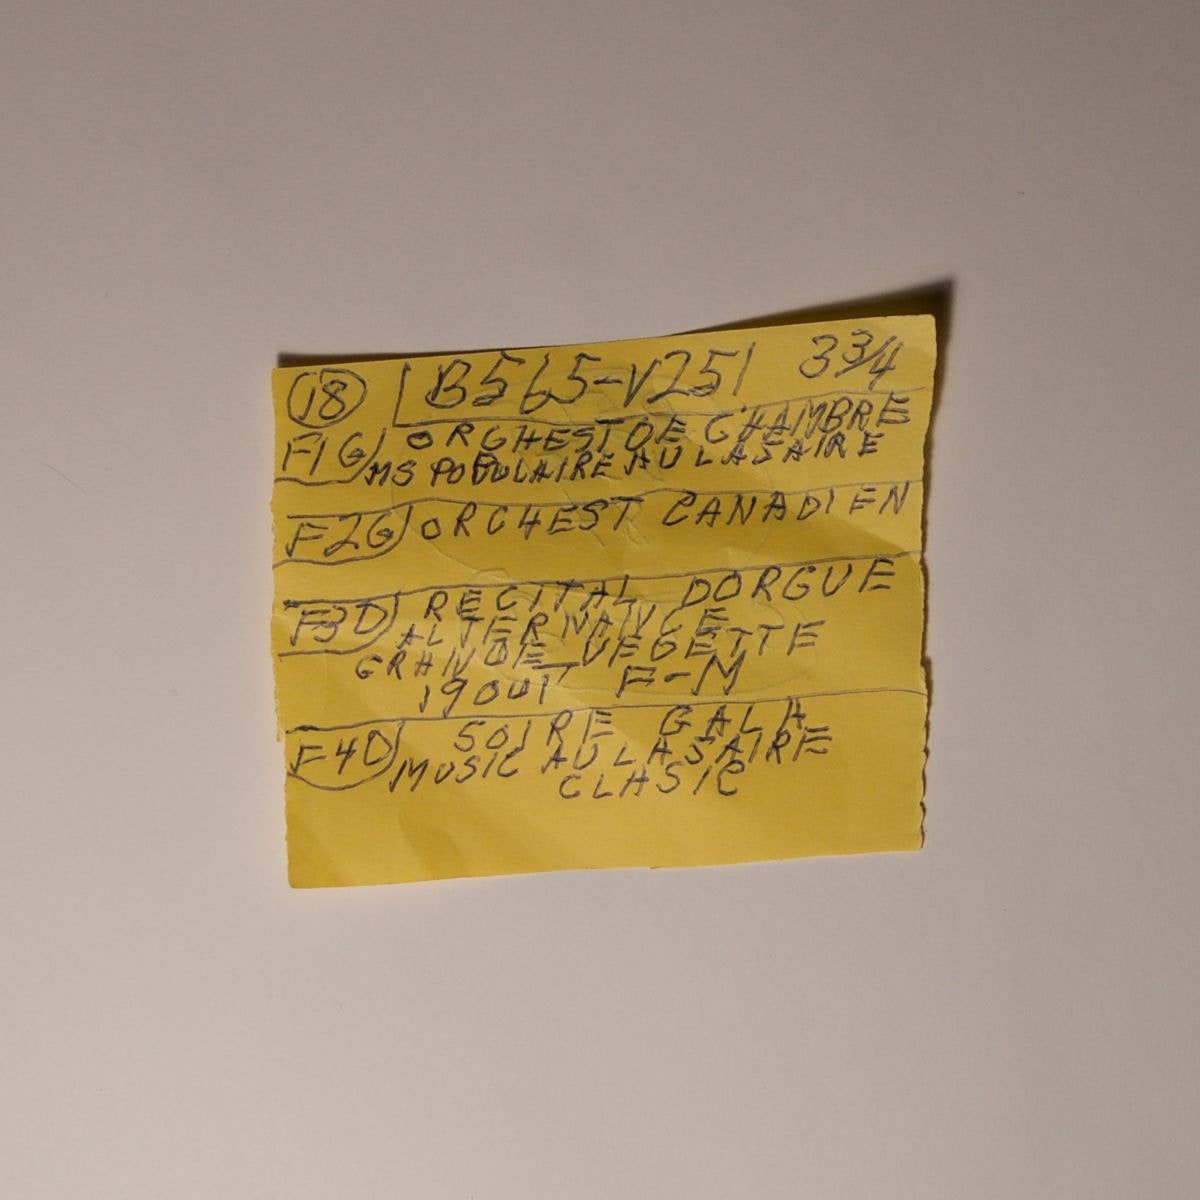 18 B565-V251 3 3/4
F1G ORCHEST DE CHAMBRE
MS POPULAIRE AU LASAIRE
F2G ORCHEST CANADIEN
F3D RECITAL DORGUE
ALTERNANCE
GRANDE VEGETTE
19 OUT F-M
F4D SOIRE GALA
MUSIC AU LASAIRE
CLASIC